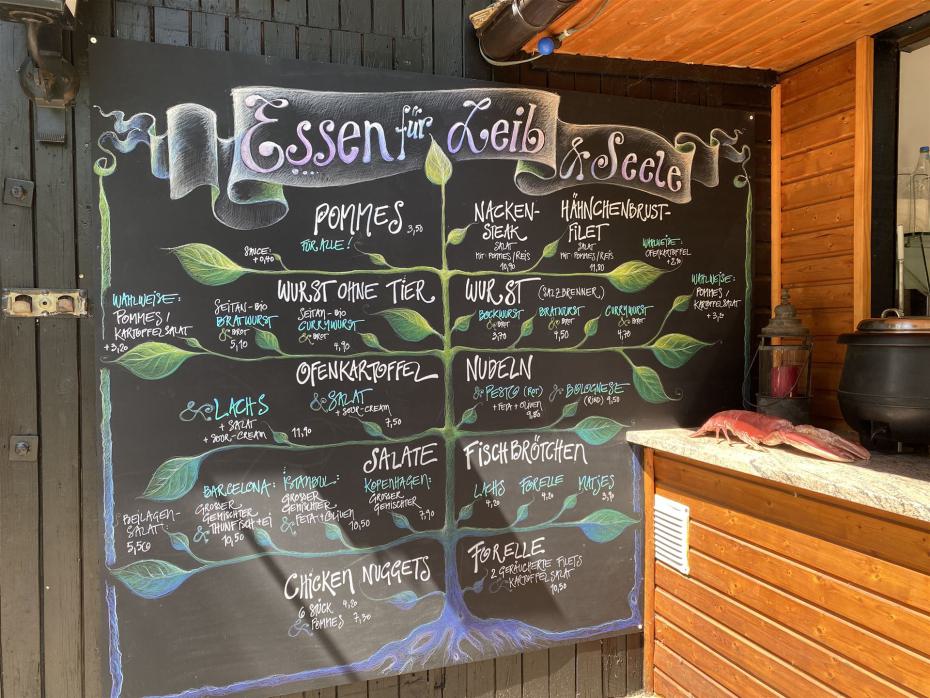 Essen für Leib & Seele
POMMES 3,50
FÜR ALLE!
SAUCE:
+ 0,40
NACKEN-
STEAK
SALAT
MIT POMMES/REIS
10,90
HÄHNCHENBRUST-
FILET
SALAT
MIT POMMES/REIS
11,80
WAHLWEISE:
OFENKARTOFFEL
+ 2,10
WAHLWEISE:
POMMES/
KARTOFFELSALAT
+ 3,20
WURST OHNE TIER
SEITAN-BIO
BRATWURST
& BROT
5,10
SEITAN-BIO
CURRYWURST
& BROT
4,90
WURST (SALZBRENNER)
BOCKWURST
& BROT
3,70
BRATWURST
& BROT
4,50
CURRYWURST
& BROT
4,70
WAHLWEISE:
POMMES/
KARTOFFELSALAT
+ 3,20
OFENKARTOFFEL
& LACHS
+ SALAT
+ SOUR-CREAM 11,90
& SALAT
+ SOUR-CREAM
7,50
NUDELN
& PESTO (ROT)
+ FETA + OLIVEN
9,80
& BOLOGNESE
(RIND) 9,50
SALATE
BEILAGEN-
SALAT:
5,50
BARCELONA:
GROSSER
GEMISCHTER
& THUNFISCH + EI
10,50
ISTANBUL:
GROSSER
GEMISCHTER
& FETA + OLIVEN
10,50
KOPENHAGEN:
GROSSER
GEMISCHTER
7,90
FISCHBRÖTCHEN
LACHS
4,20
FORELLE
4,20
MATJES
3,90
CHICKEN NUGGETS
6 STÜCK 4,20
& POMMES 7,30
FORELLE
2 GERÄUCHERTE FILETS
& KARTOFFELSALAT
10,50